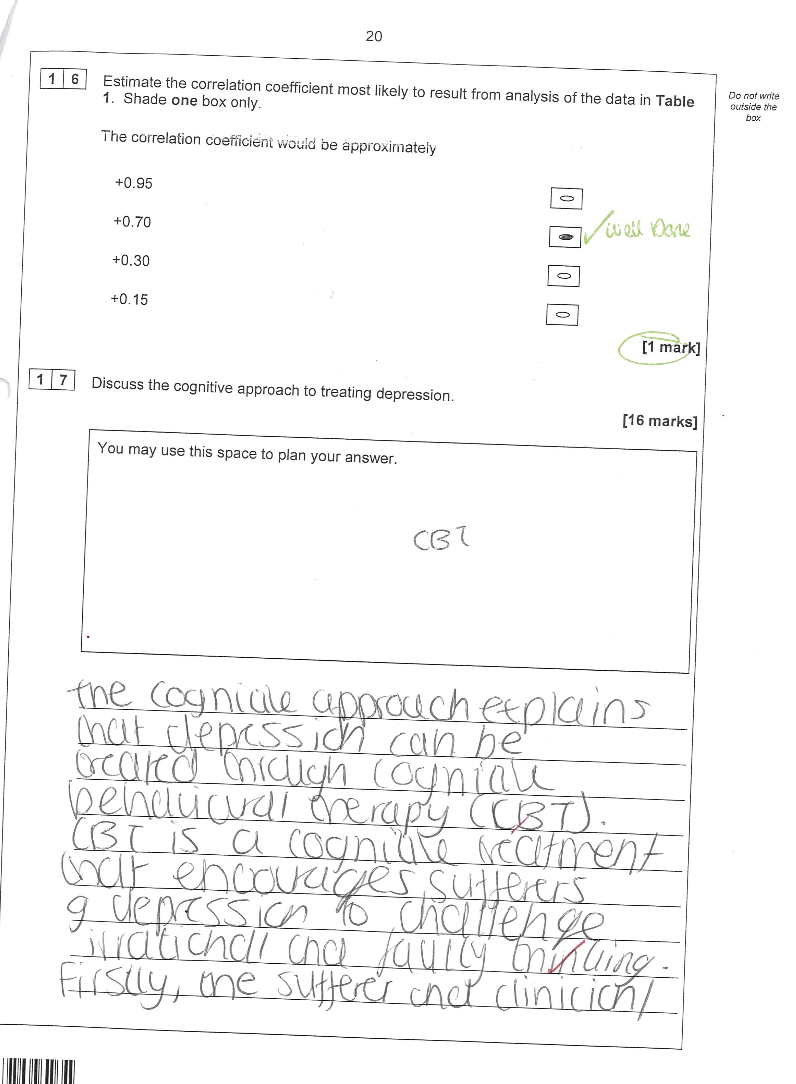 20
1 6 Estimate the correlation coefficient most likely to result from analysis of the data in Table
1. Shade one box only.
Do not write
outside the
box
The correlation coefficient would be approximately
+0.95
+0.70
✓ Well Done
+0.30
+0.15
[1 mark]
1 7 Discuss the cognitive approach to treating depression.
[16 marks]
You may use this space to plan your answer.
CBT
the cognitive approach explains
that depression can be
treated through cognitive
behavioural therapy (CBT).
CBT is a cognitive treatment
that encourages sufferers
of depression to challenge
irrational and faulty thinking.
Firstly, the sufferer and clinician/